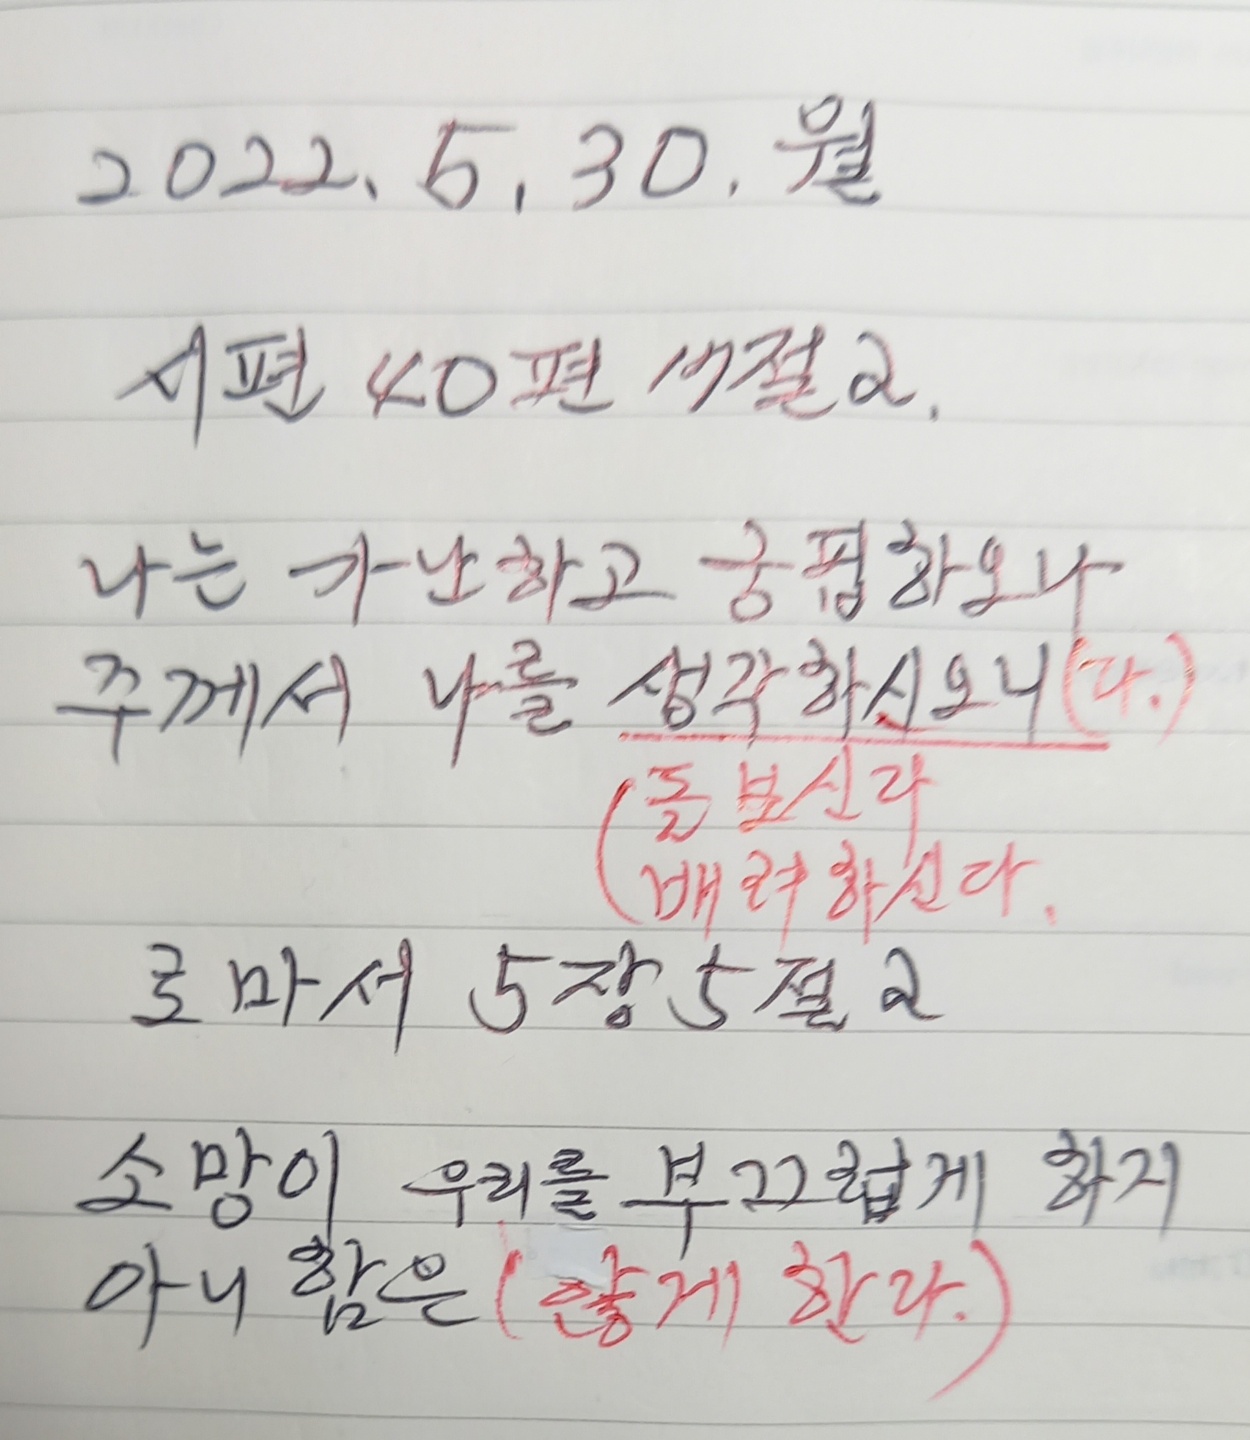 2022. 5. 30. 월
시편 40편 17절 2.
나는 가난하고 궁핍하오나
주께서 나를 생각하시오니(다.)
(돌보신다
배려하신다.
로마서 5장 5절 2
소망이 우리를 부끄럽게 하지
아니함은 (않게 한다.)